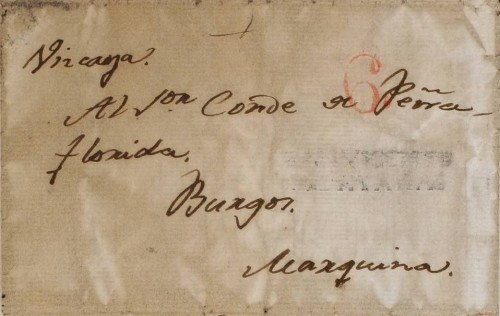 Vizcaya.
6
Al Son Conde de Peña-
florida.
Burgos.
Marquina.